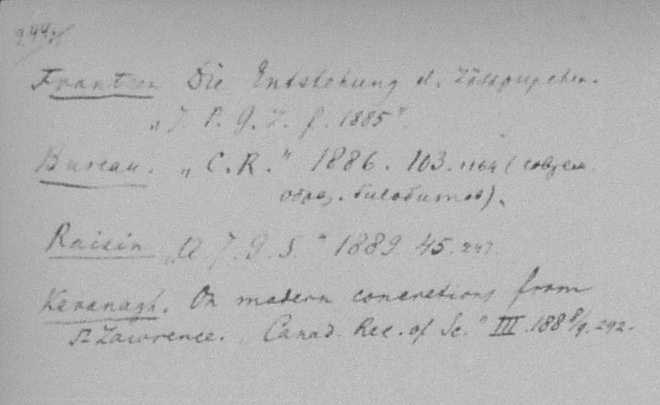 Frantzen Die Entstehung d.
1885"
Bureau. „C.R." 1886. 103. 1164 (
Raisin „Q J. G. S." 1889. 45. 247.
Kavanagh. On modern concretions from
St Lawrence. „Canad. Rec. of Sc." III. 1888/9. 292.